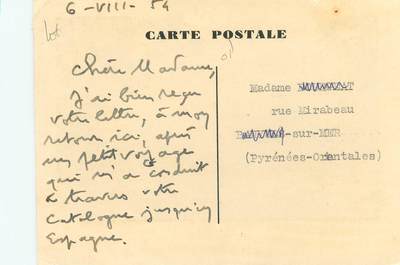 6-VIII-54
CARTE POSTALE
Chère Madame,
j'ai bien reçu
votre lettre, à mon
retour ici, après
un petit voyage
qui m'a conduit
à travers votre
Catalogne jusqu'en
Espagne.
Madame
rue Mirabeau
-sur-MER
(Pyrénées-Orientales)